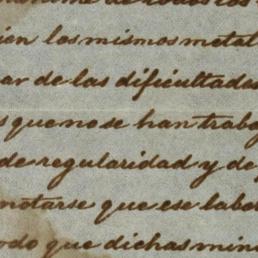 de todos los
ien los mismos metal
ar de las dificultades
s que no se han traba
de regularidad y de
notarse que ese labo
odo que dichas min